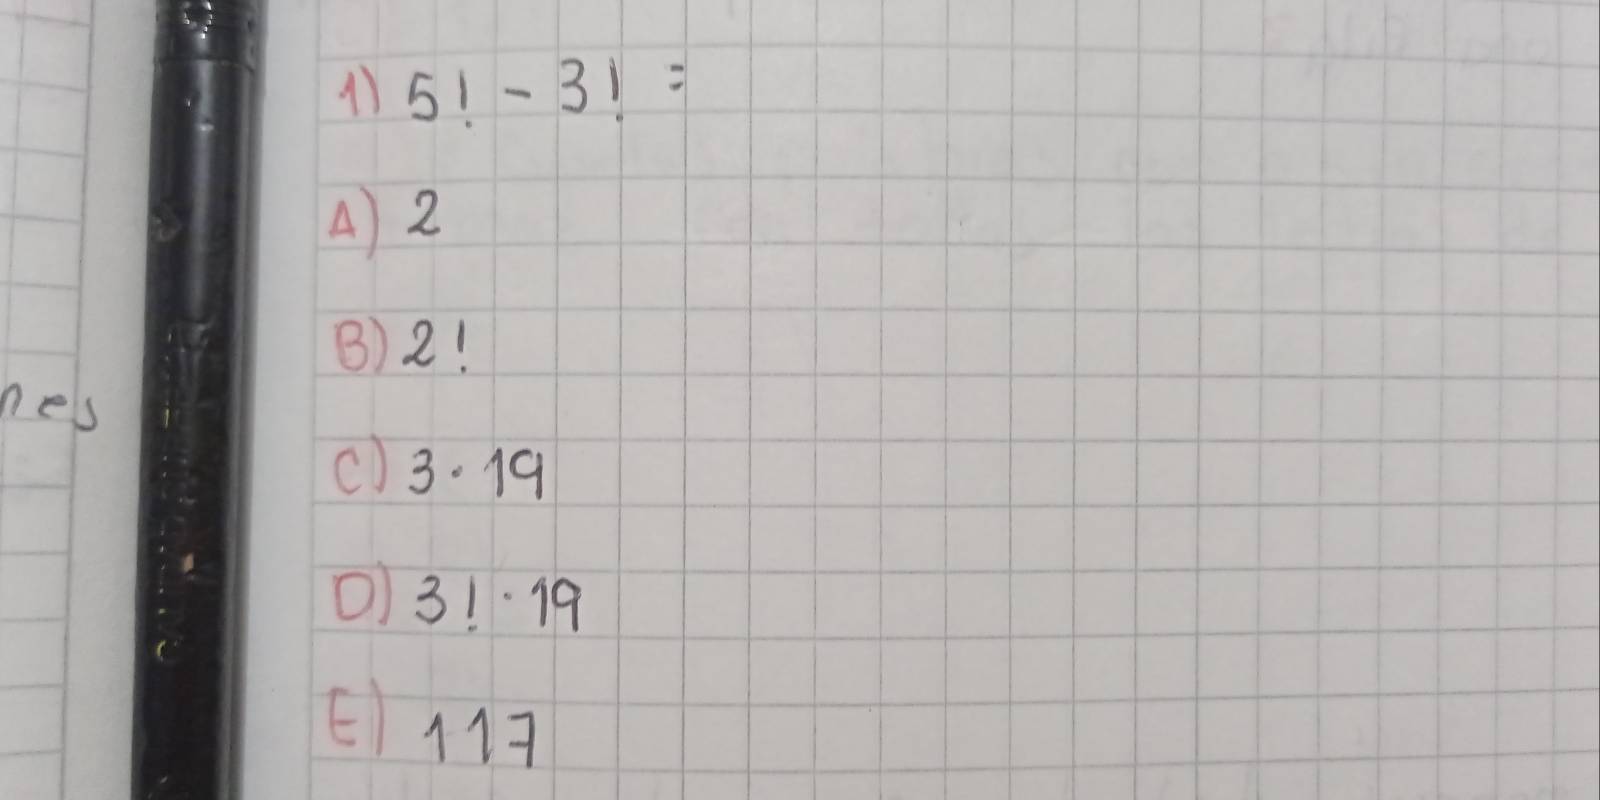 nes
1) 5! - 3! =
A) 2
B) 2!
C) 3 · 19
D) 3! · 19
E) 117